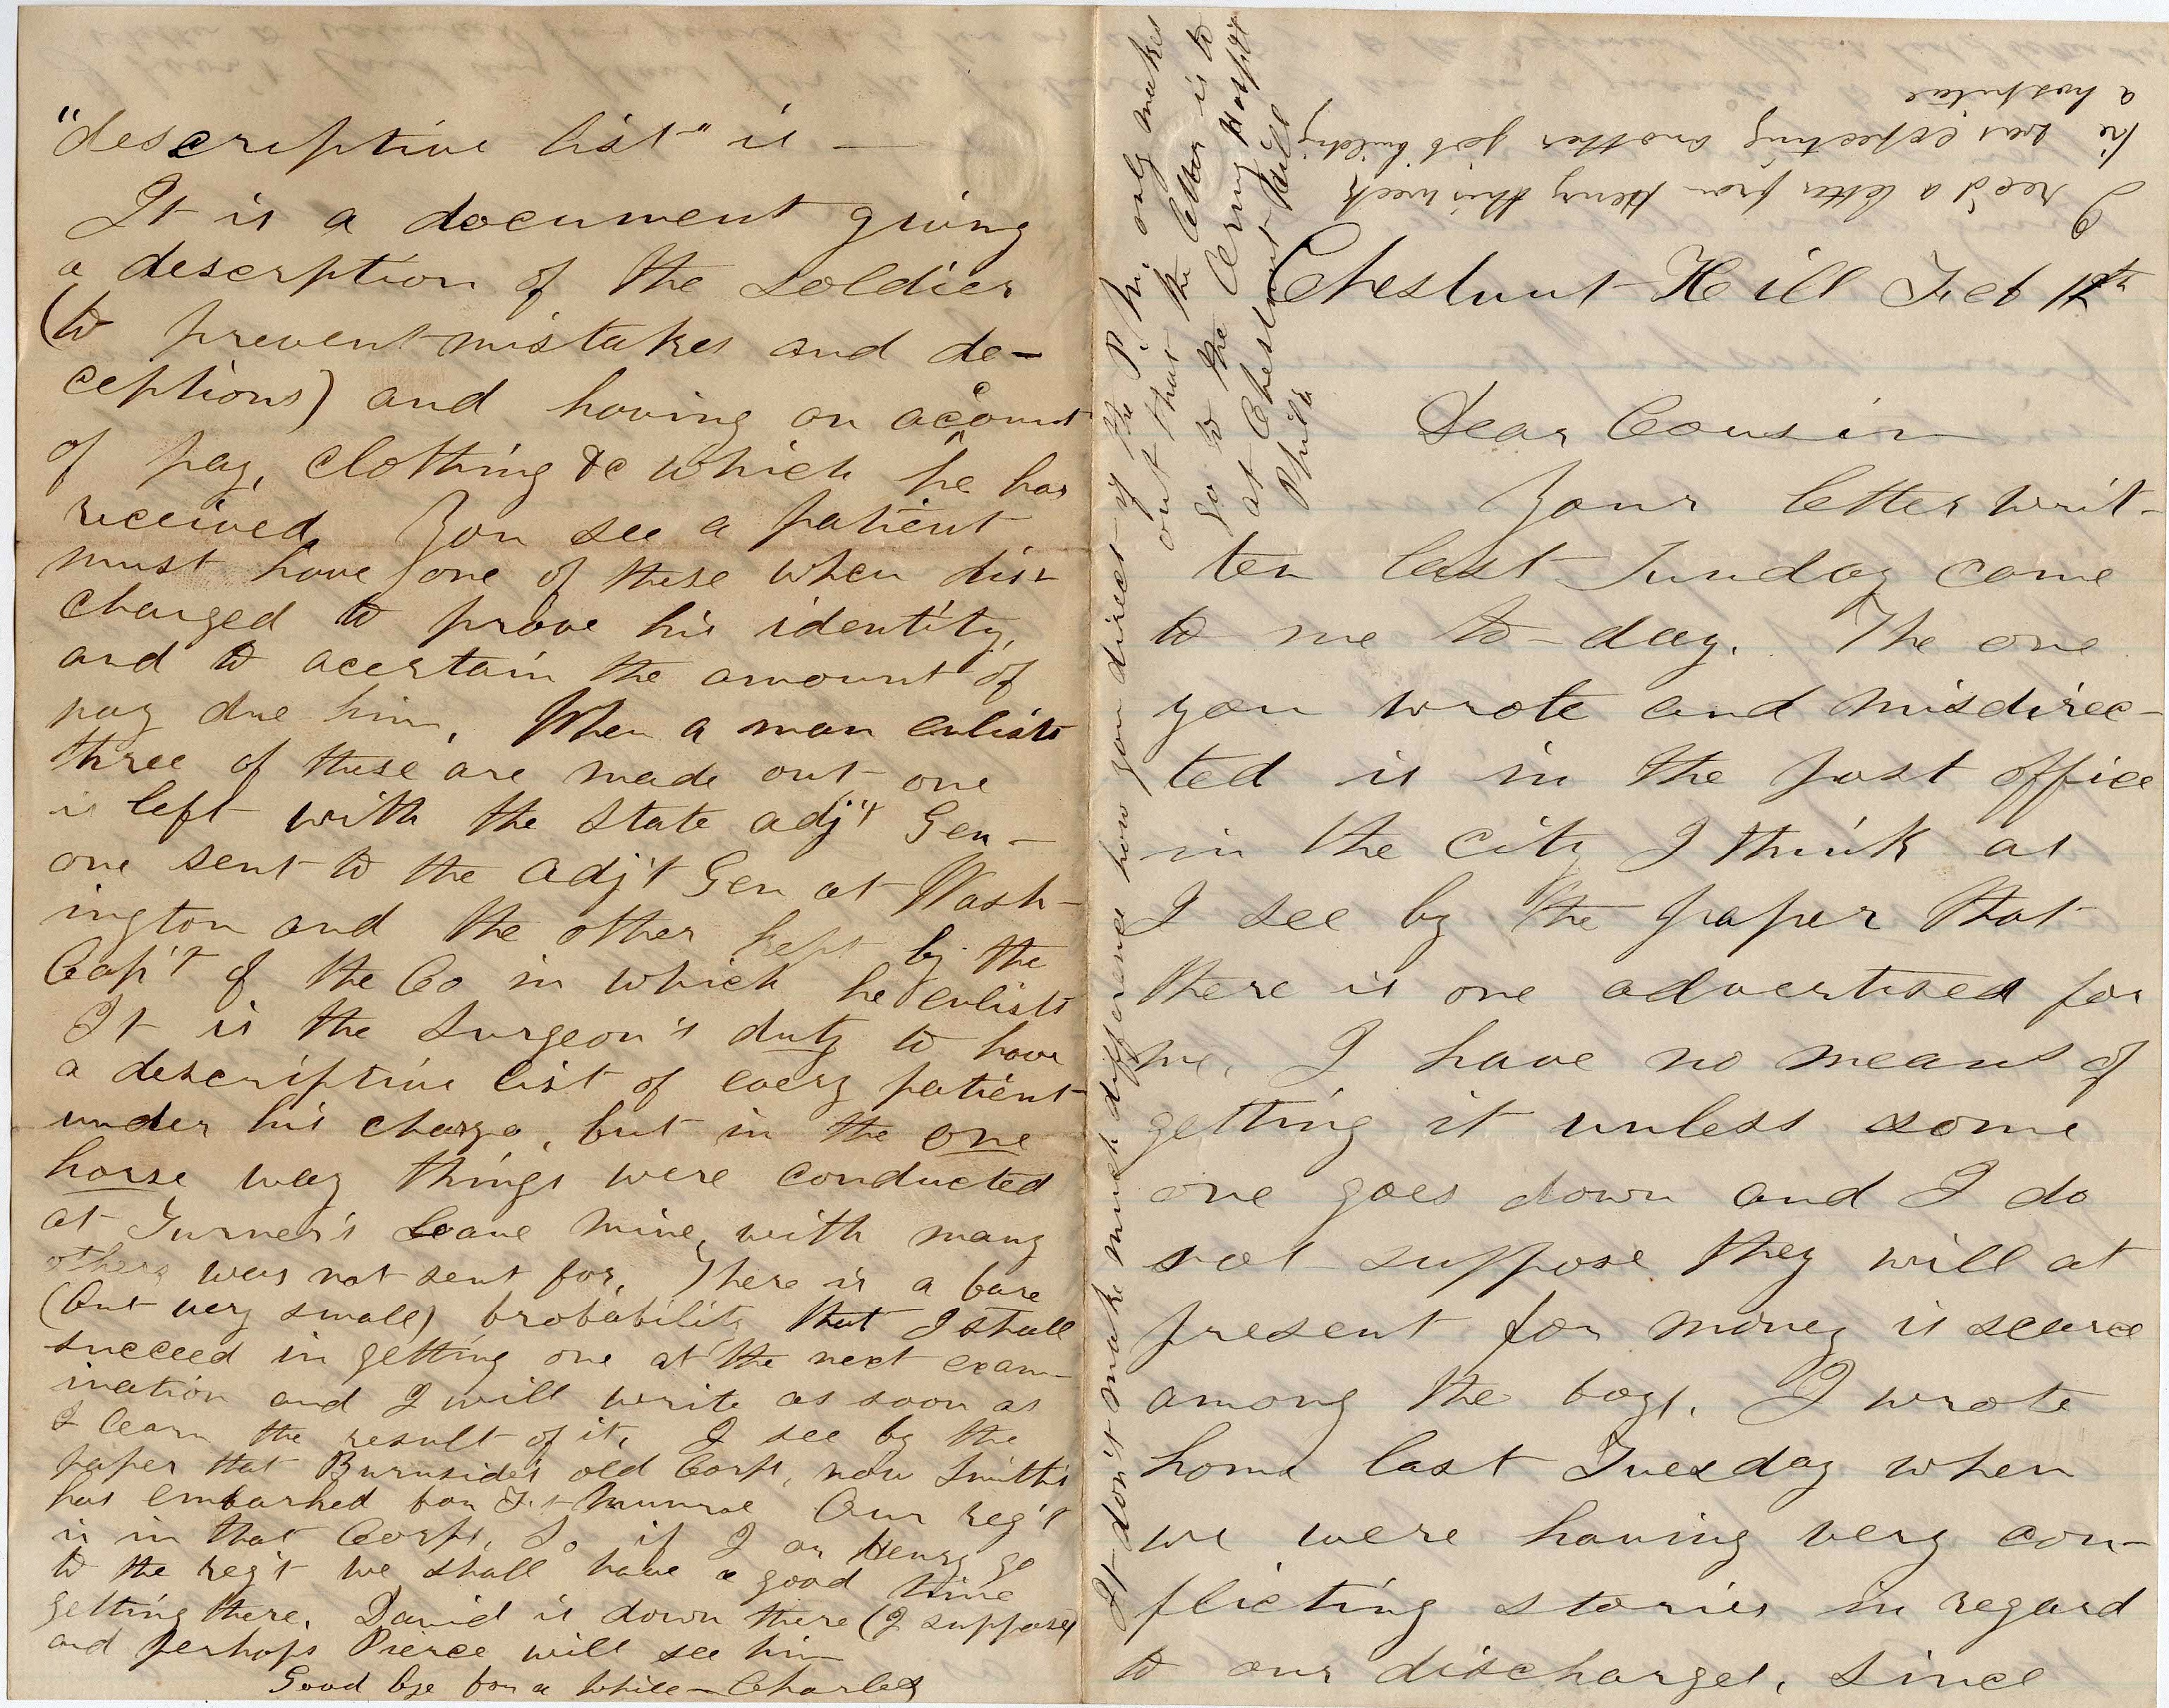 I rec'd a letter from Henry this week
he was expecting another job building
a hospital
Chestnut Hill Feb
Dear Cousin
Your letter writ-
ten last Sunday came
to me to-day. The one
you wrote and misdirec-
ted is in the post office
in the city I think as
I see by the paper that
there is one advertised for
me. I have no means of
getting it unless some
one goes down and I do
not suppose they will at
present for money is scarce
among the boys. I wrote
home last Tuesday when
we were having very con-
flicting stories in regard
to our discharges, since
It don't make much difference how you direct if the P.M. only makes
out that the letter is to
go to the Army Hospital
at Chestnut Hill
Phila
"descriptive list" is —
It is a document giving
a descrption of the soldier
(to prevent mistakes and de-
ceptions) and having an account
of pay, clothing &c which he has
received. You see a patient
must have one of these when dis-
charged to prove his identity,
and to acertain the amount of
pay due him. When a man enlists
three of these are made out one
is left with the State adj't Gen —
one sent to the Adj't Gen at Wash-
ington and the other kept by the
Cap't of the Co in which he enlists
It is the Surgeon's duty to have
a descriptive list of every patient
under his charge, but in the one
horse way things were conducted
at Turner's Leane mine, with many
others was not sent for. There is a bare
(but very small) probability that I shall
succeed in getting one at the next exam-
ination and I will write as soon as
I learn the result of it. I see by the
paper that Burnside's old Corps, now Smith's
has embarked for Ft Munroe Our reg't
is in that Corps. So if I or Henry go
to the reg't we shall have a good time
getting there. David is down there (I suppose)
and perhaps Pierce will see him
Good bye for a while — Charles